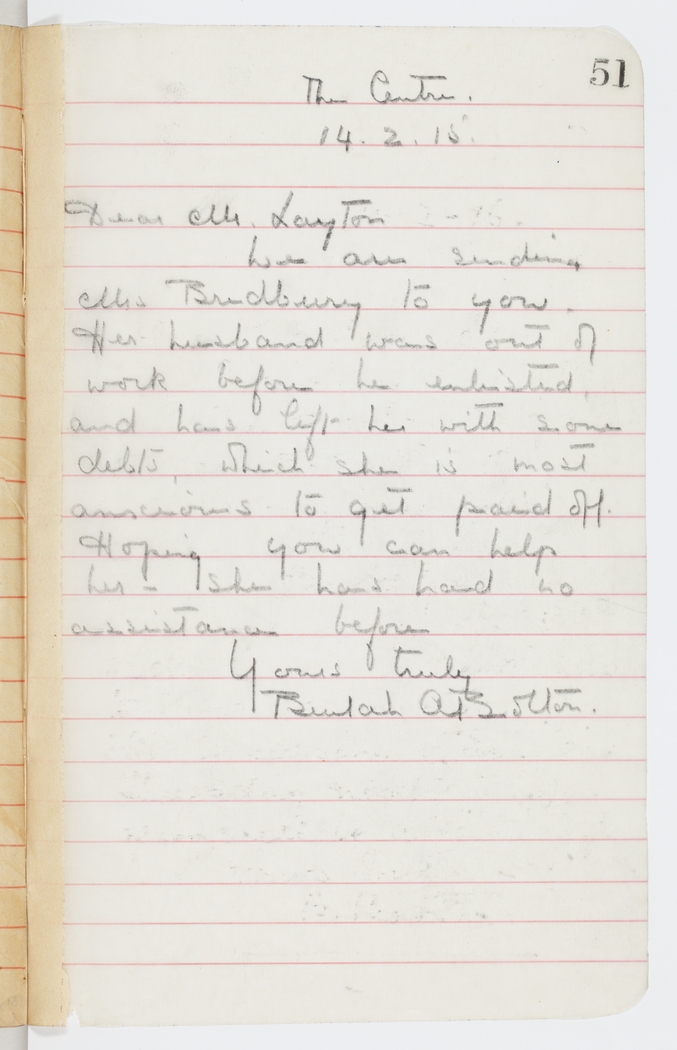 51
The Centre.
14. 2. 15.
Dear Mr. Layton
We are sending
Mrs Bredbury to you.
Her husband was out of
work before he enlisted,
and has left her with some
debts, which she is most
anxious to get paid off.
Hoping you can help
her - She has had no
assistance before
Yours truly
Beulah A Bolton.